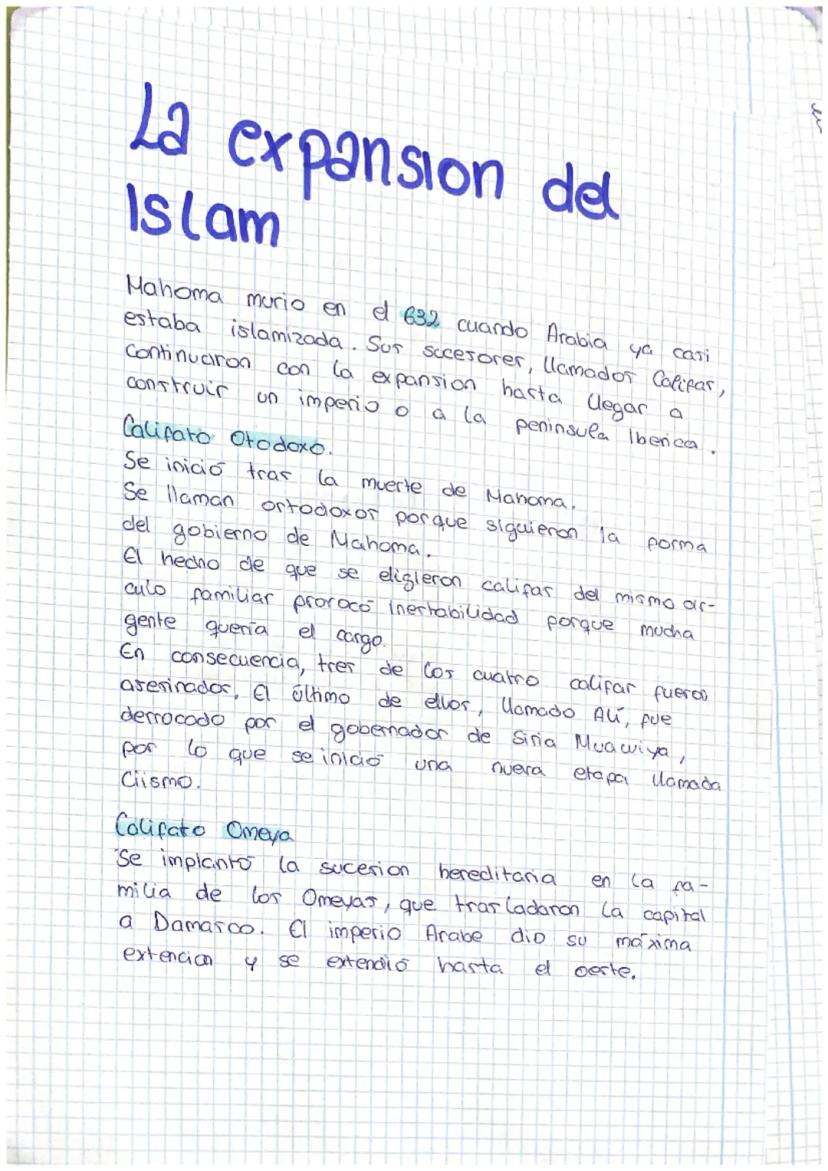 La expansion del
Islam
Mahoma murio en el 632 cuando Arabia ya casi
estaba islamizada. Sus sucesores, llamados Califas,
continuaron con la expansion hasta llegar a
construir un imperio o a la peninsula Iberica.
Califato Otodoxo.
Se inició tras la muerte de Mahoma.
Se llaman ortodoxos porque siguieron la forma
del gobierno de Mahoma.
El hecho de que se eligieron califas del mismo cir-
culo familiar provocó inestabilidad porque mucha
gente quería el cargo.
En consecuencia, tres de los cuatro califas fueron
asesinados, El último de ellos, llamado Alí, fue
derrocado por el gobernador de Siria Muawiya,
por lo que se inició una nueva etapa llamada
Ciismo.
Califato Omeya
Se implantó la sucesion hereditaria en la fa-
milia de los Omeyas, que trasladaron la capital
a Damasco. El imperio Arabe dio su máxima
extencion y se extendió hasta el oeste.